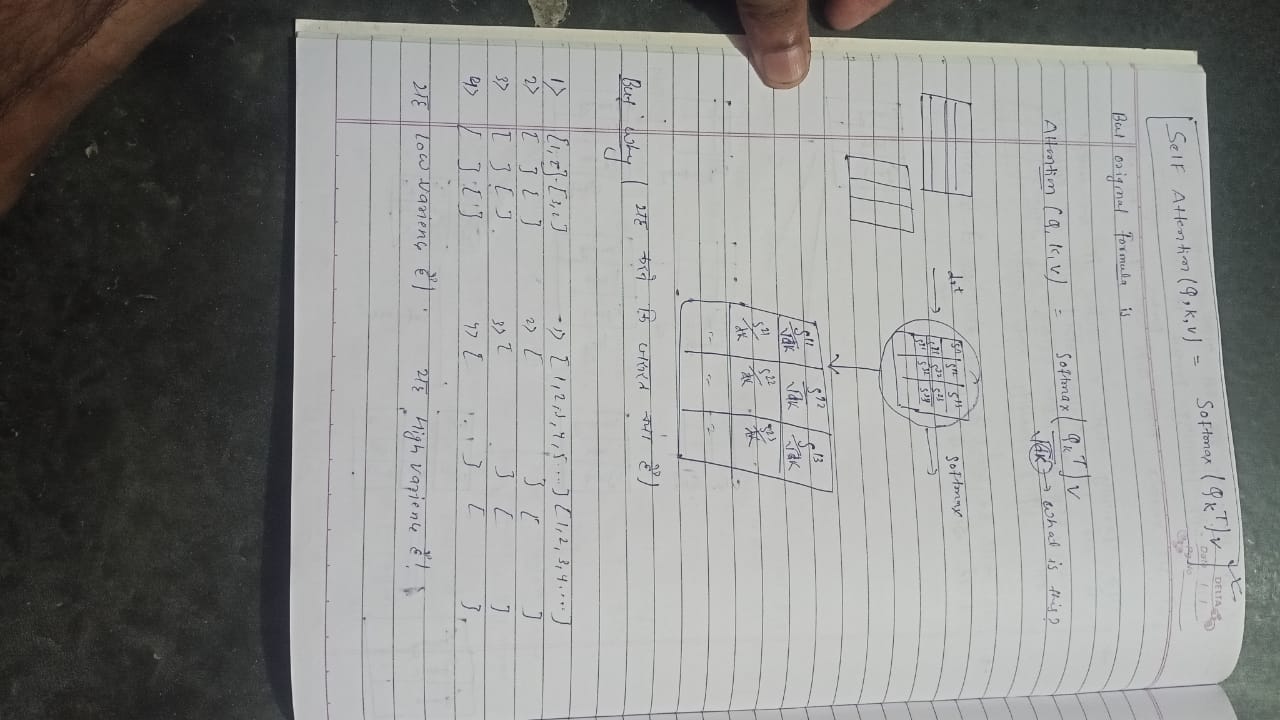 Self Attention (Q, K, V) = Softmax (QK^T) V
DELTA
Date
Pg No
But original formula is
Attention (Q, K, V) = Softmax (QK^T / √dK) V
→ what is this?
dot
S11 S12 S13
S21 S22 S23
S31 S32
Softmax
S11/√dK S12/√dK S13/√dK
S21/dK S22/dK S23/dK
But why ( यह करने कि जरूरत क्या है)
1> [1,2]·[3,2] → 1> [1,2,3,4,5...] [1,2,3,4....]
2> [ ] [ ] 2> [ ] [ ]
3> [ ] [ ] 3> [ ] [ ]
4> [ ] · [ ] 4> [ ... ] [ ]
यह low varience है। यह High varience है!